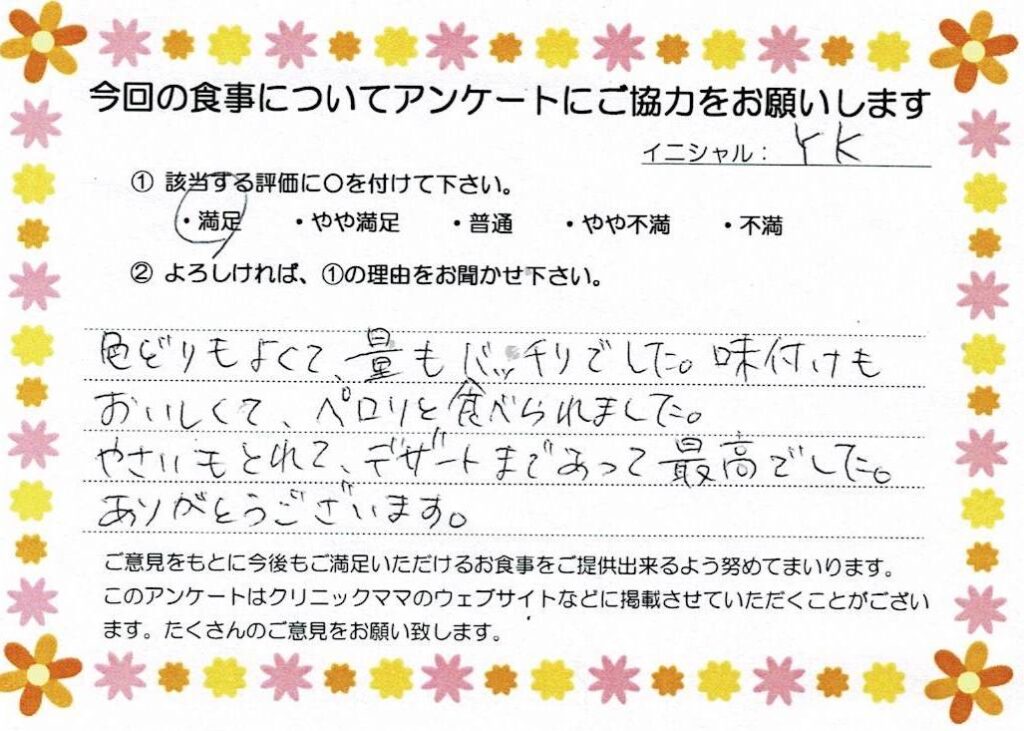 今回の食事についてアンケートにご協力をお願いします
イニシャル： YK
① 該当する評価に〇を付けて下さい。
・満足 ・やや満足 ・普通 ・やや不満 ・不満
② よろしければ、①の理由をお聞かせ下さい。
色どりもよくて、量もバッチリでした。味付けも
おいしくて、ペロリと食べられました。
やさいもとれて、デザートまであって最高でした。
ありがとうございます。
ご意見をもとに今後もご満足いただけるお食事をご提供出来るよう努めてまいります。
このアンケートはクリニックママのウェブサイトなどに掲載させていただくことがござい
ます。たくさんのご意見をお願い致します。